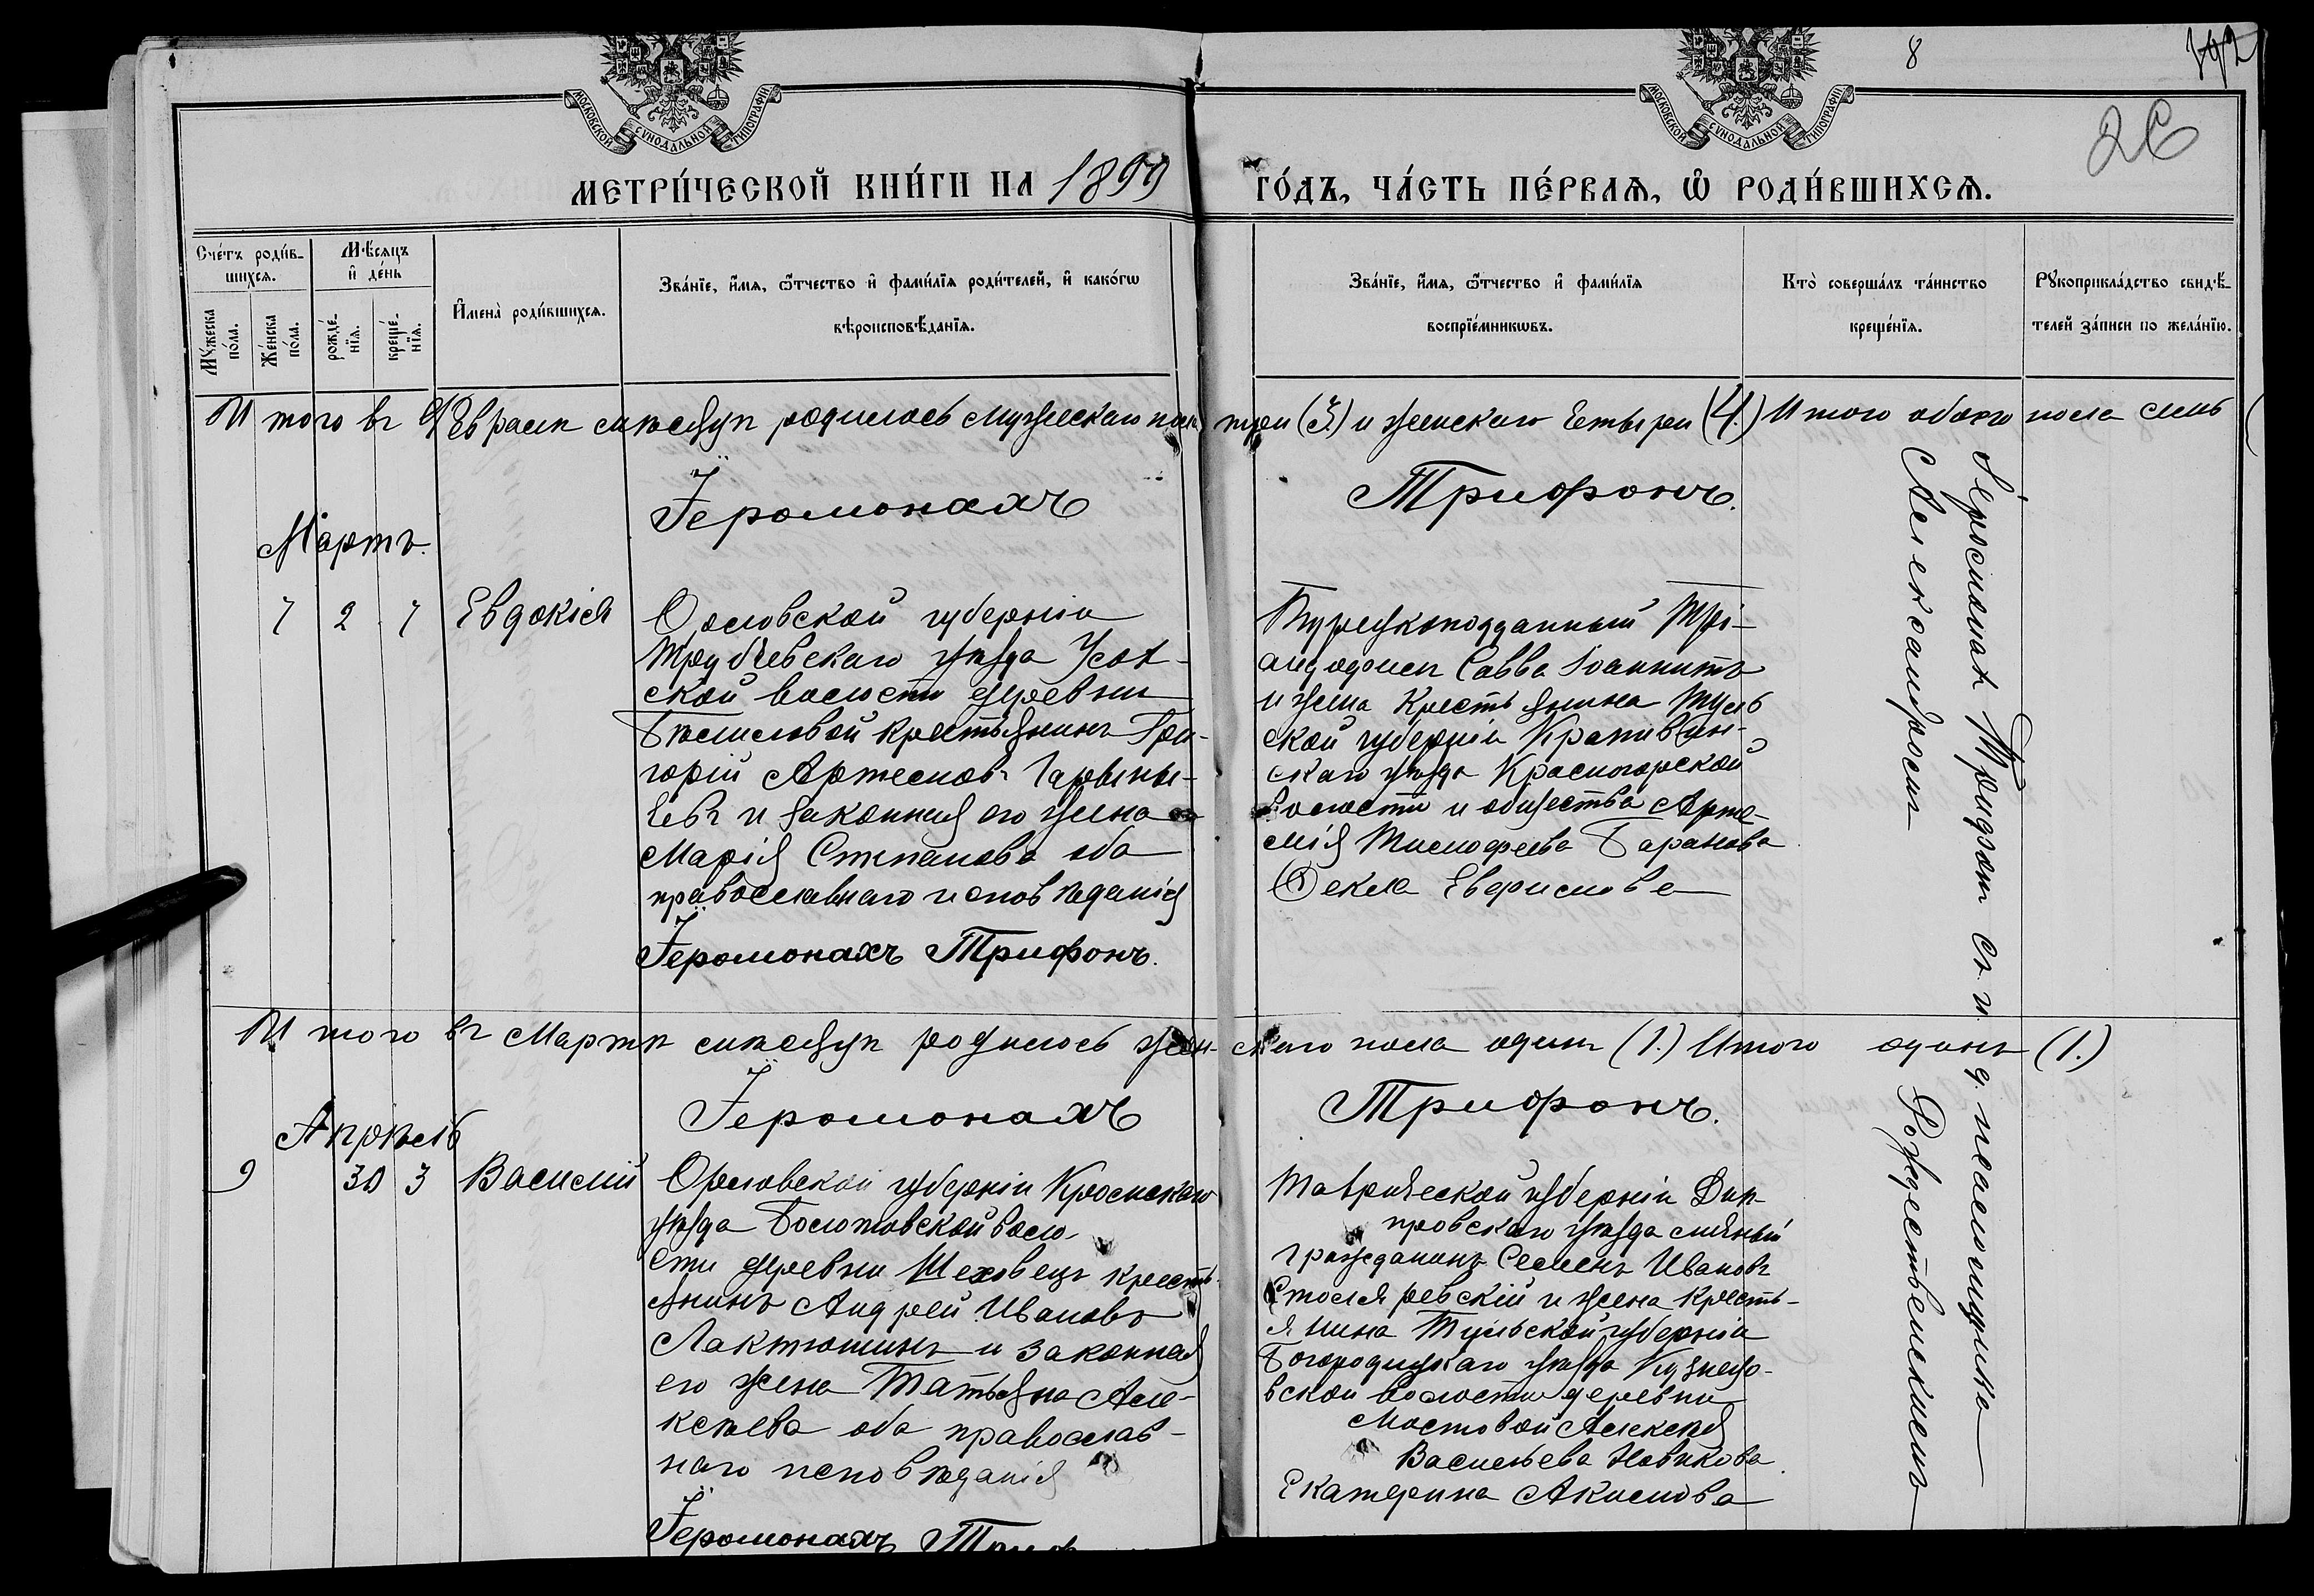 8
26
МОСКОВСКОЙ СѴНОДАЛЬНОЙ ТИПОГРАФІИ
МОСКОВСКОЙ СѴНОДАЛЬНОЙ ТИПОГРАФІИ
МЕТРИ́ЧЕСКОЙ КНИ́ГИ НА 1899 ГО́ДЪ, ЧА́СТЬ ПЕ́РВАѦ, Ѡ҆ РОДИ́ВШИХСѦ.
Сче́тъ роди́в-
шихсѧ.
Мꙋ́жеска по́ла.
Же́нска по́ла.
Мѣ́сѧцъ
и҆ де́нь
рожде́-
нїѧ.
креще́-
нїѧ.
И҆мена̀ роди́вшихсѧ.
Зва́нїе, и҆́мѧ, ѻ҆́тчество и҆ фами́лїѧ роди́телей, и҆ како́гѡ
вѣроисповѣ́данїѧ.
Зва́нїе, и҆́мѧ, ѻ҆́тчество и҆ фами́лїѧ
воспрїе́мникѡвъ.
Кто̀ соверша́лъ та́инство
креще́нїѧ.
Рꙋкоприкла́дство свидѣ́-
телей за́писи по жела́нїю.
И того въ Февралѣ мѣсяцѣ родилось мужескаго пола три (3.) и женскаго четыре (4.) Итого обоего пола семь
Іеромонахъ Трифонъ.
Мартъ.
7 2 7 Евдокія
Орловской губерніи
Трубчевскаго уѣзда Усох-
ской волости деревни
крестьянинъ Гри-
горій Артемовъ
и законная его жена
Марія Степанова оба
православнаго исповѣданія
Іеромонахъ Трифонъ.
Турецкоподданный Трі-
андофилъ Савва Іоаннитъ
и жена крестьянина Туль
ской губерніи Крапивен-
скаго уѣзда Красногорской
волости и общества Арте-
мія Тимофеева Баранова
Фекла
Іеромонах Тиидзот съ и. д. псаломщика
Александромъ Рождественскимъ
И того въ Мартѣ мѣсяцѣ родилось жен-скаго пола один (1.) Итого одинъ (1.)
Іеромонахъ Трифонъ.
Апрѣль
9 30 3 Василій
Орловской губерніи Кромскаго
уѣзда Болотовской воло-
сти деревни Шеховецъ кресть-
янинъ Андрей Ивановъ
Лактюшинъ и законная
его жена Татьяна Але-
ксѣева оба православ-
наго исповѣданія
Іеромонахъ Триф
Таврической губерніи Днѣ
провскаго уѣзда личный
гражданинъ Семенъ Ивановъ
Столяревскій и жена кресть-
янина Тульской губерніи
Богородицкаго уѣзда Кузнецо-
вской волости деревни
Мостовой Алексѣя
Васильева Новикова
Екатерина Акимова